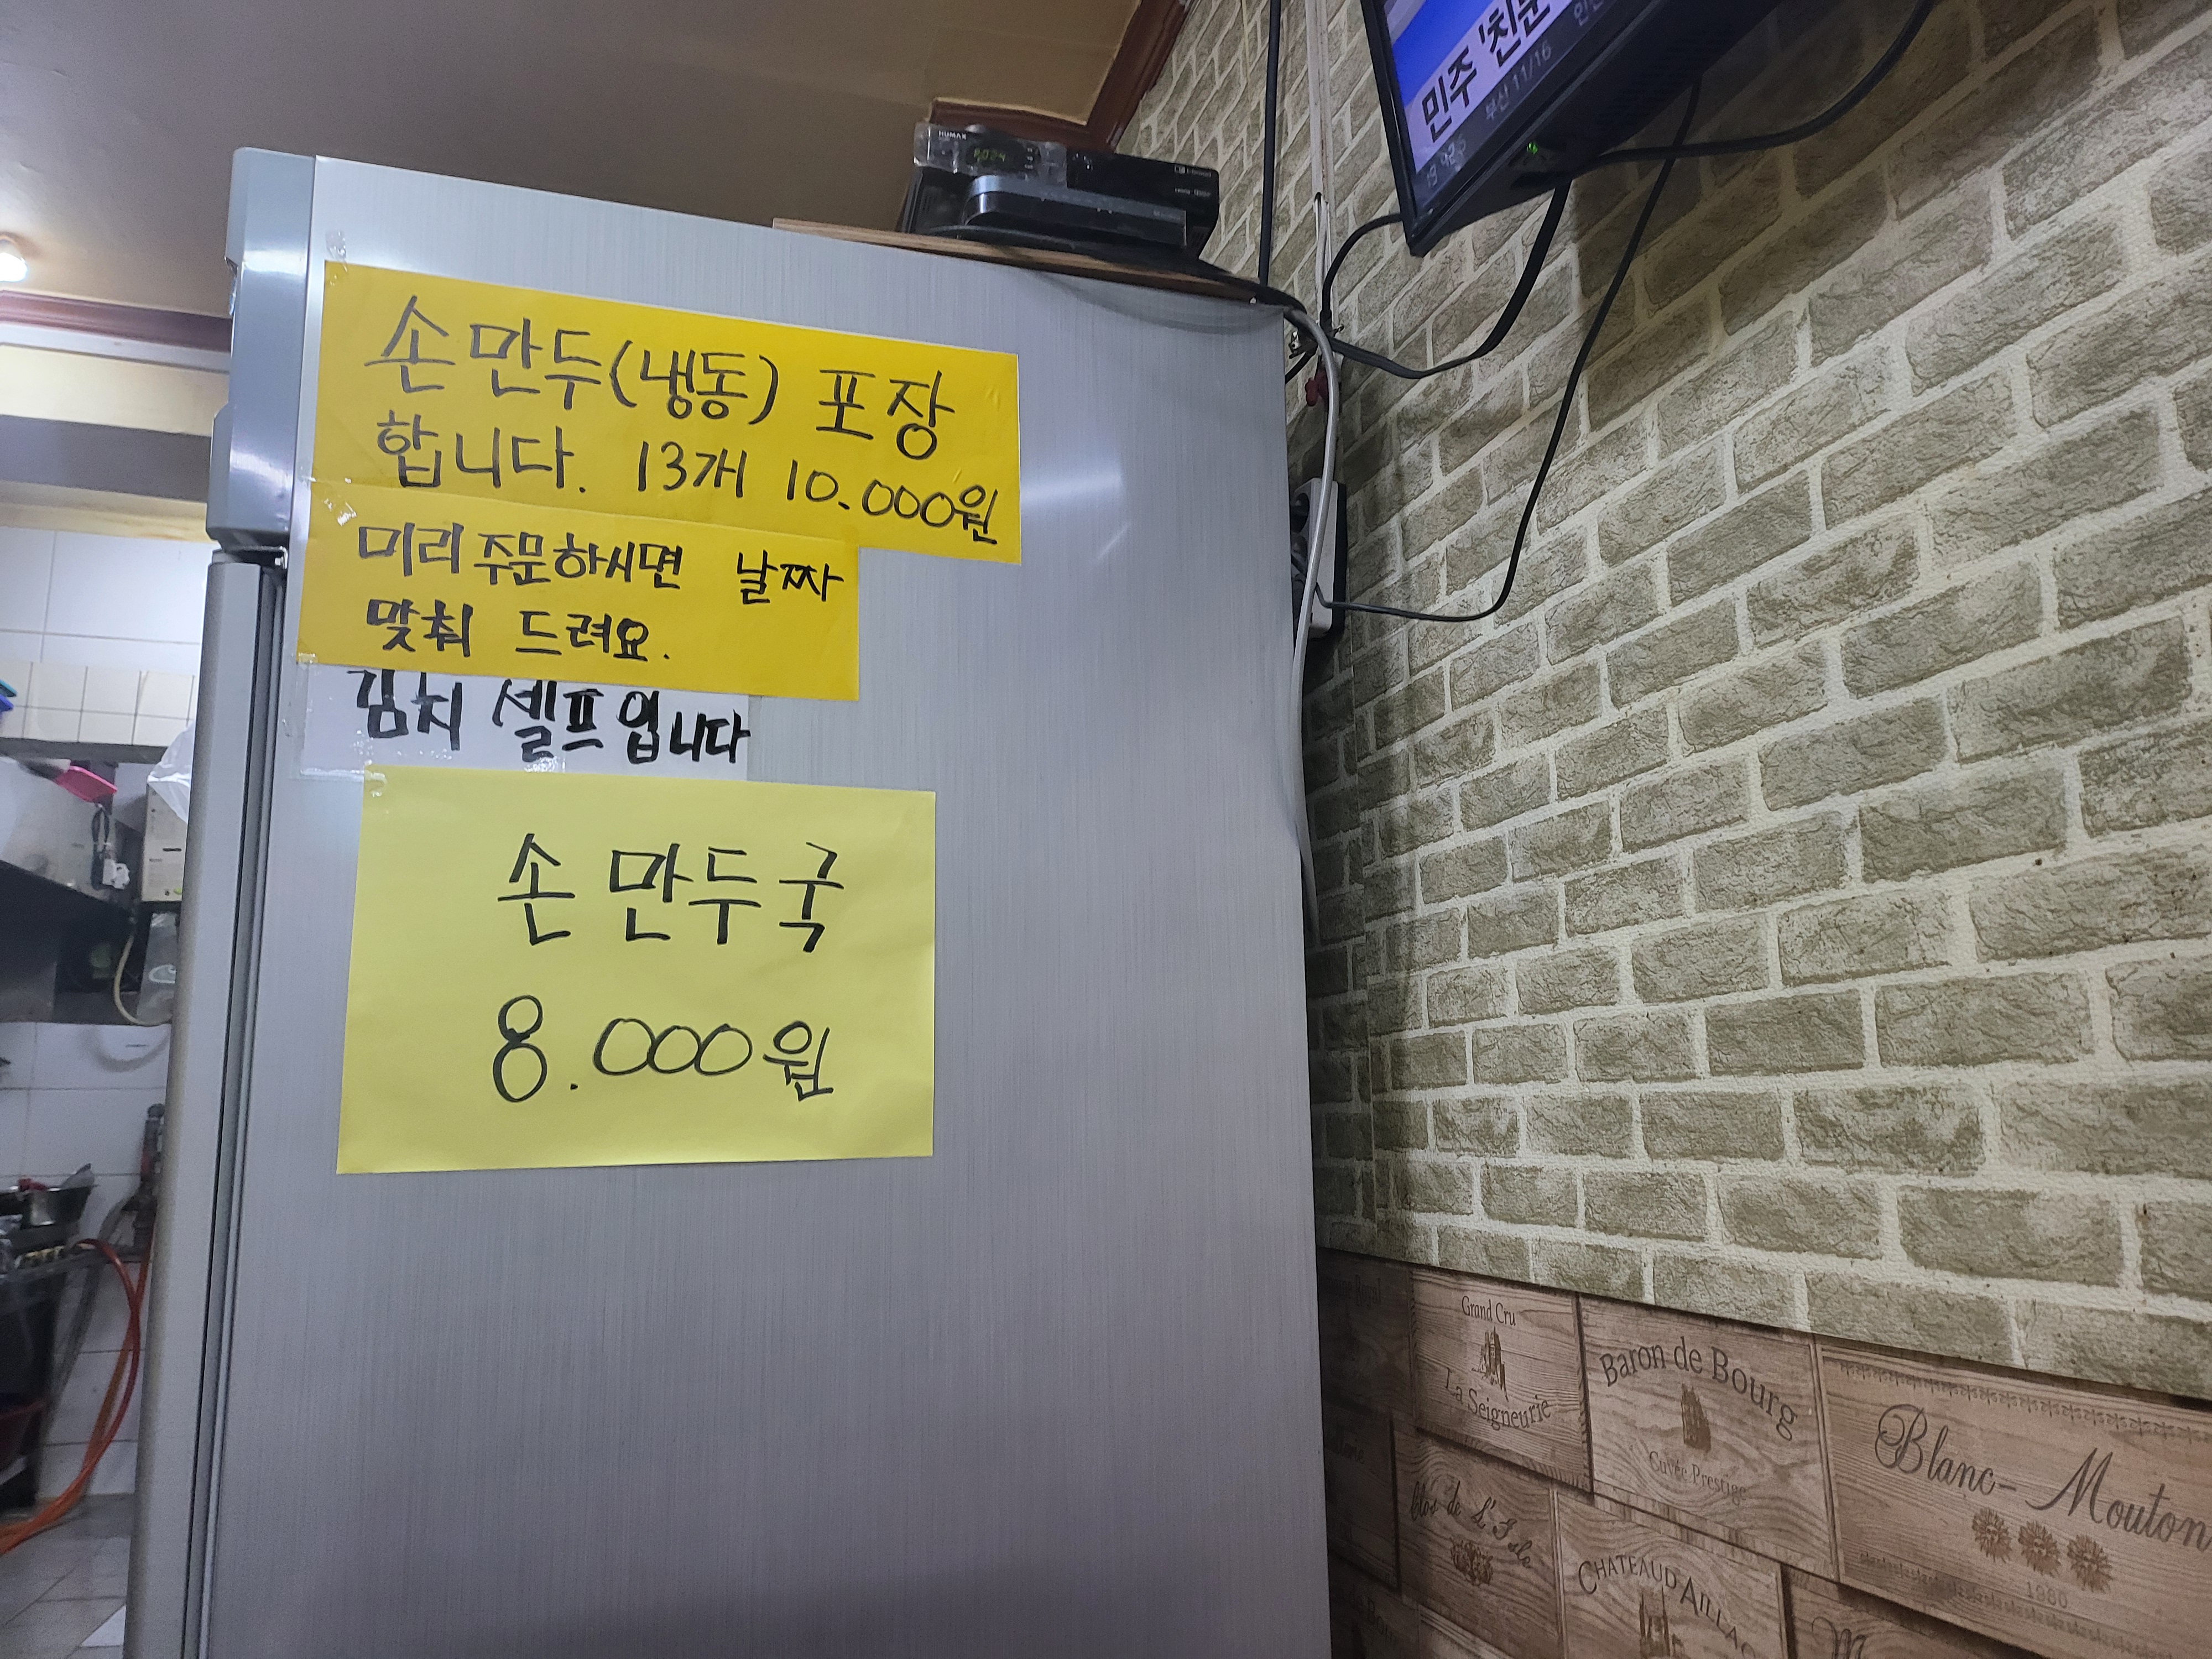 손만두(냉동) 포장
합니다. 13개 10.000원
미리 주문하시면 날짜
맞춰 드려요.
김치 셀프입니다
손만두국
8.000원
HUMAX
민주 '친문
부산 11/16
Grand Cru
La Seigneurie
Baron de Bourg
Cuvée Prestige
Blanc-Mouton
1980
Clos de L'Isle